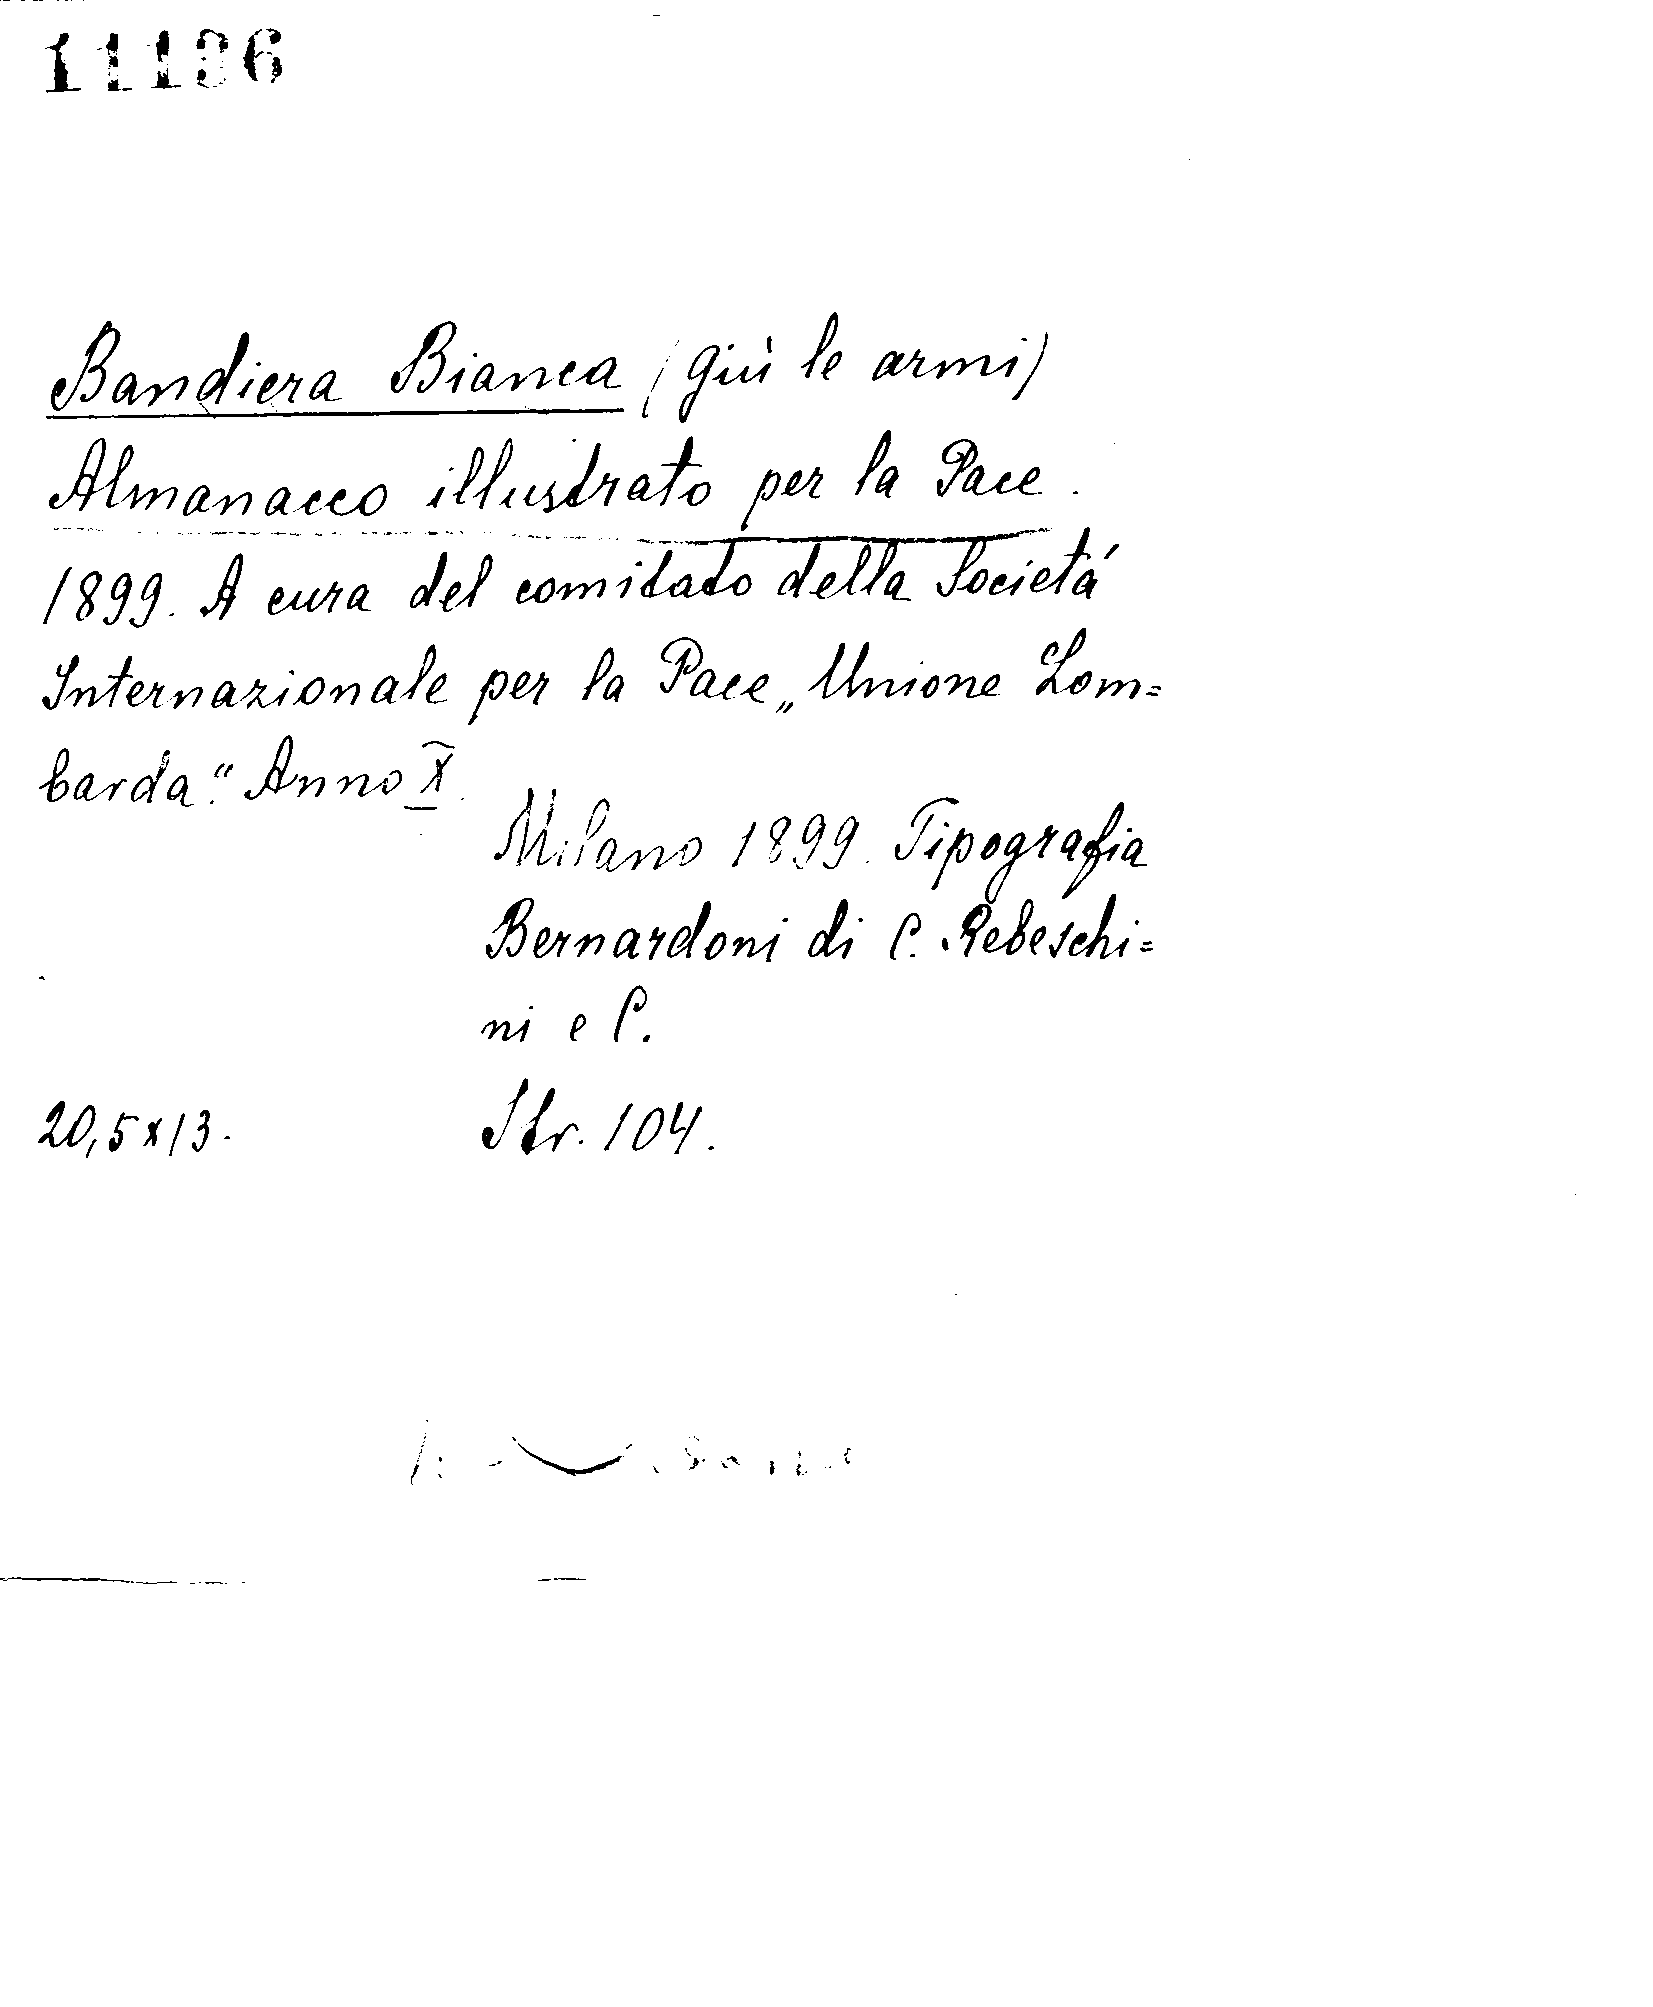 11136
Bandiera Bianca (giù le armi)
Almanacco illustrato per la Pace.
1899. A cura del comitato della Societá
Internazionale per la Pace „Unione Lom=
barda." Anno X.
Milano 1899. Tipografia
Bernardoni di C. Rebeschi=
ni e C.
20,5x13. Str. 104.